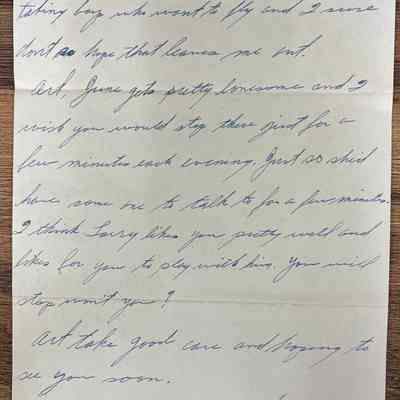 taking boys who want to fly and I sure
don't so hope that leaves me out.
Art, June gets pretty lonesome and I
wish you would stop there just for a
few minutes each evening, Just so she'd
have some one to talk to for a few minutes.
I think Larry likes you pretty well and
likes for you to play with him. You will
stop won't you?
Art take good care and hoping to
see you soon.